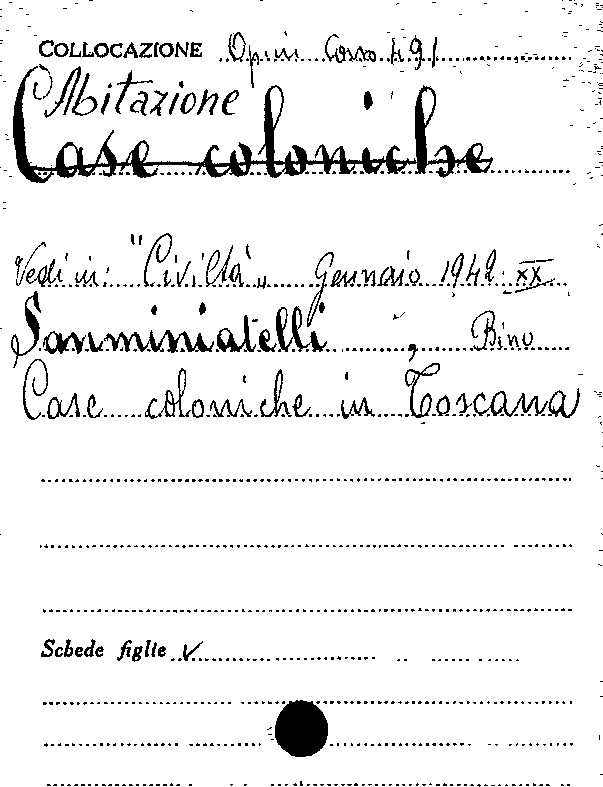 COLLOCAZIONE Op. in Corso 491
Abitazione
Case coloniche
Vedi in: "Civiltà„ Gennaio 1942 XX
Sanminiatelli , Bino
Case coloniche in Toscana
Schede figlie ✓